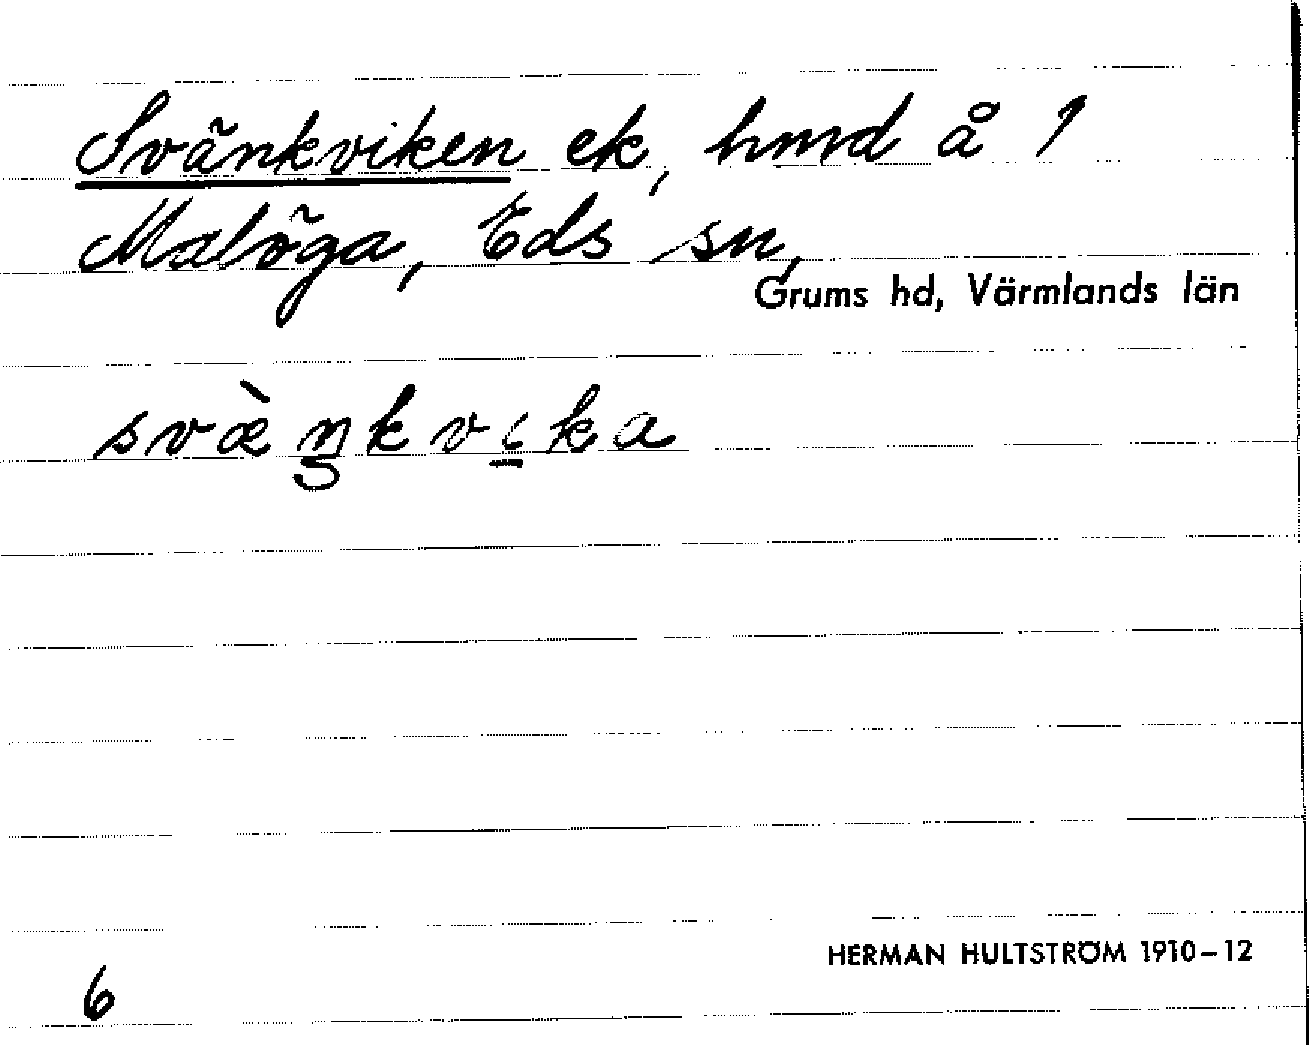 Svänkviken ek, hmd å 1
Malöga, Eds sn,
Grums hd, Värmlands län
svæ̀ŋkvi̠ka
HERMAN HULTSTRÖM 1910–12
6